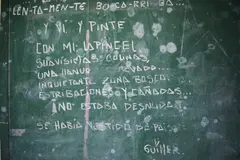 LEN-TA-MEN-TE BO-CA-RRI-BA...
Y VÍ Y PINTE
CON MI LAPINCEL
SUAVISIDAS COLINAS,
UNA LLANURA
INQUIETANTE, UNA BOSCO,
ESTRIBACIONES Y CAÑADAS...
¡NO ESTABA DESNUDA!
SE HABIA VESTIDO DE PAIS
GUILLER